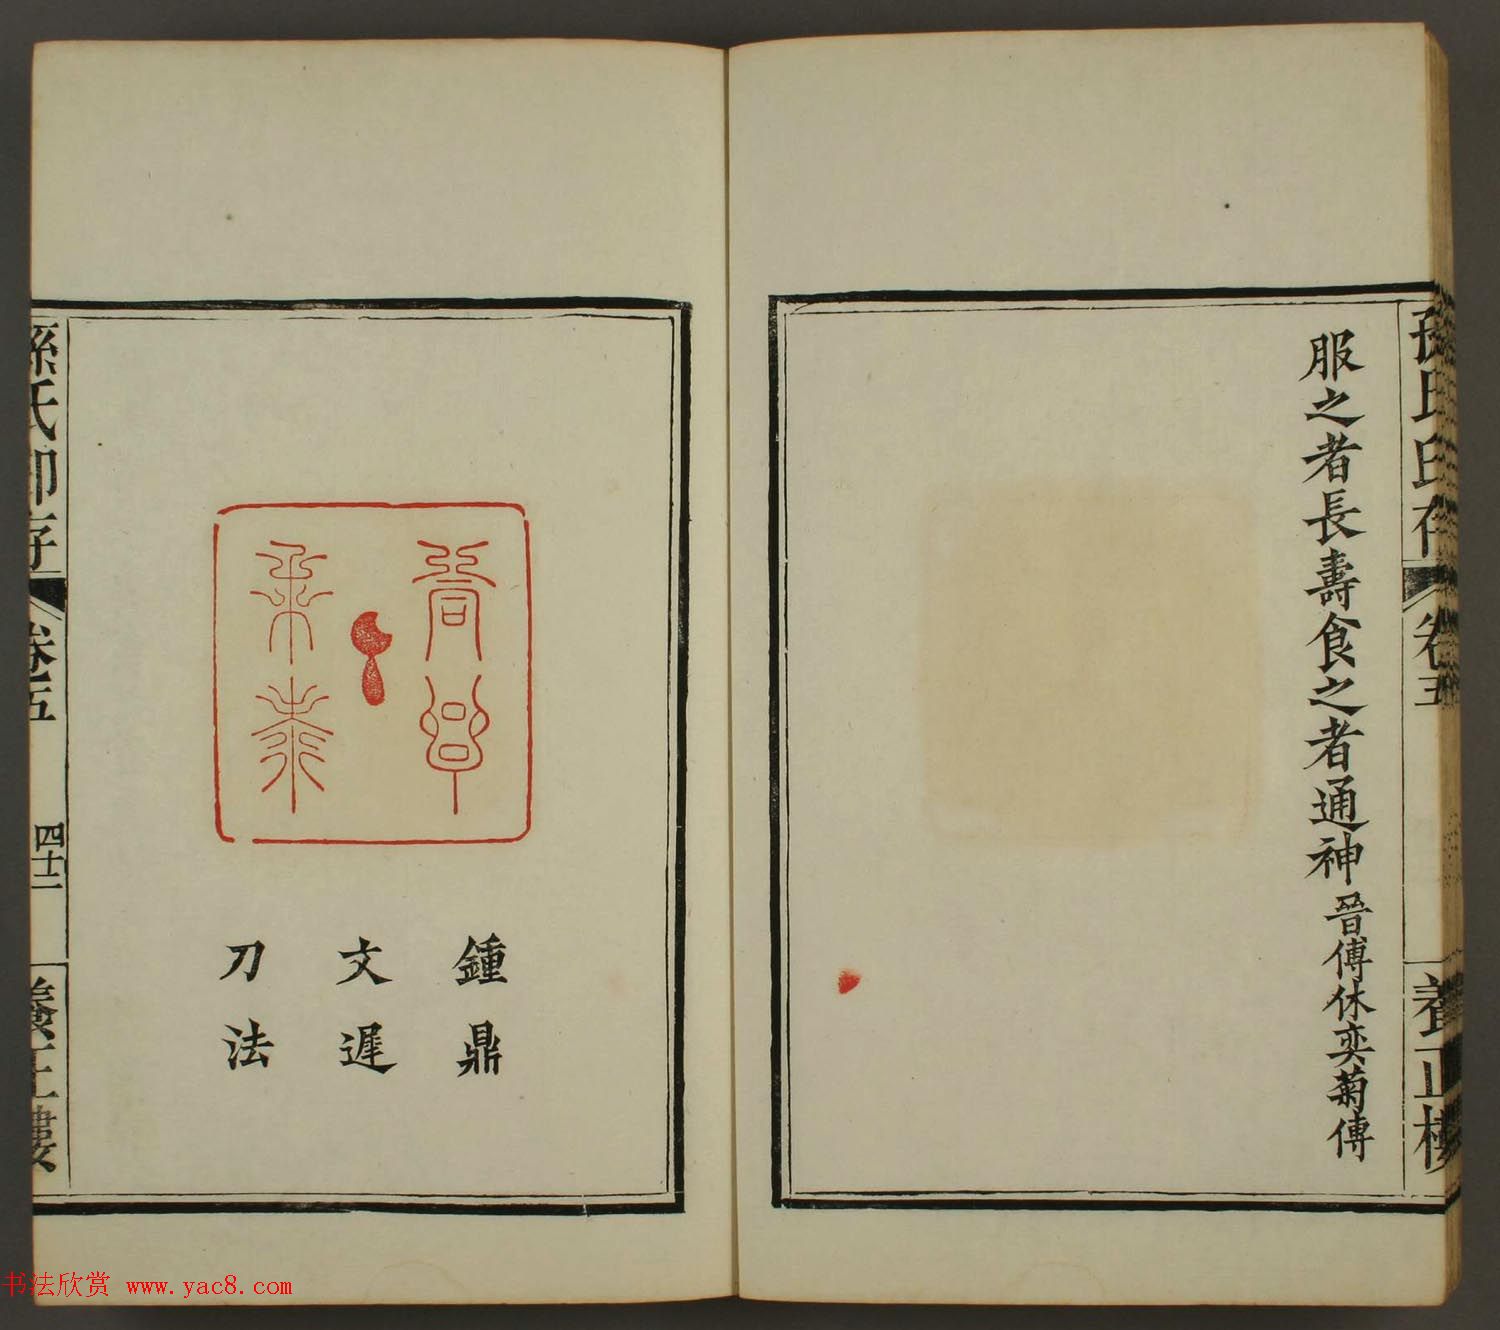 孫氏印存 卷五 養正樓
服之者長壽食之者通神 晉傅休奕菊傅
鍾鼎
文遲
刀法
孫氏印存 卷五 四十二 養正樓
书法欣赏 www.yac8.com